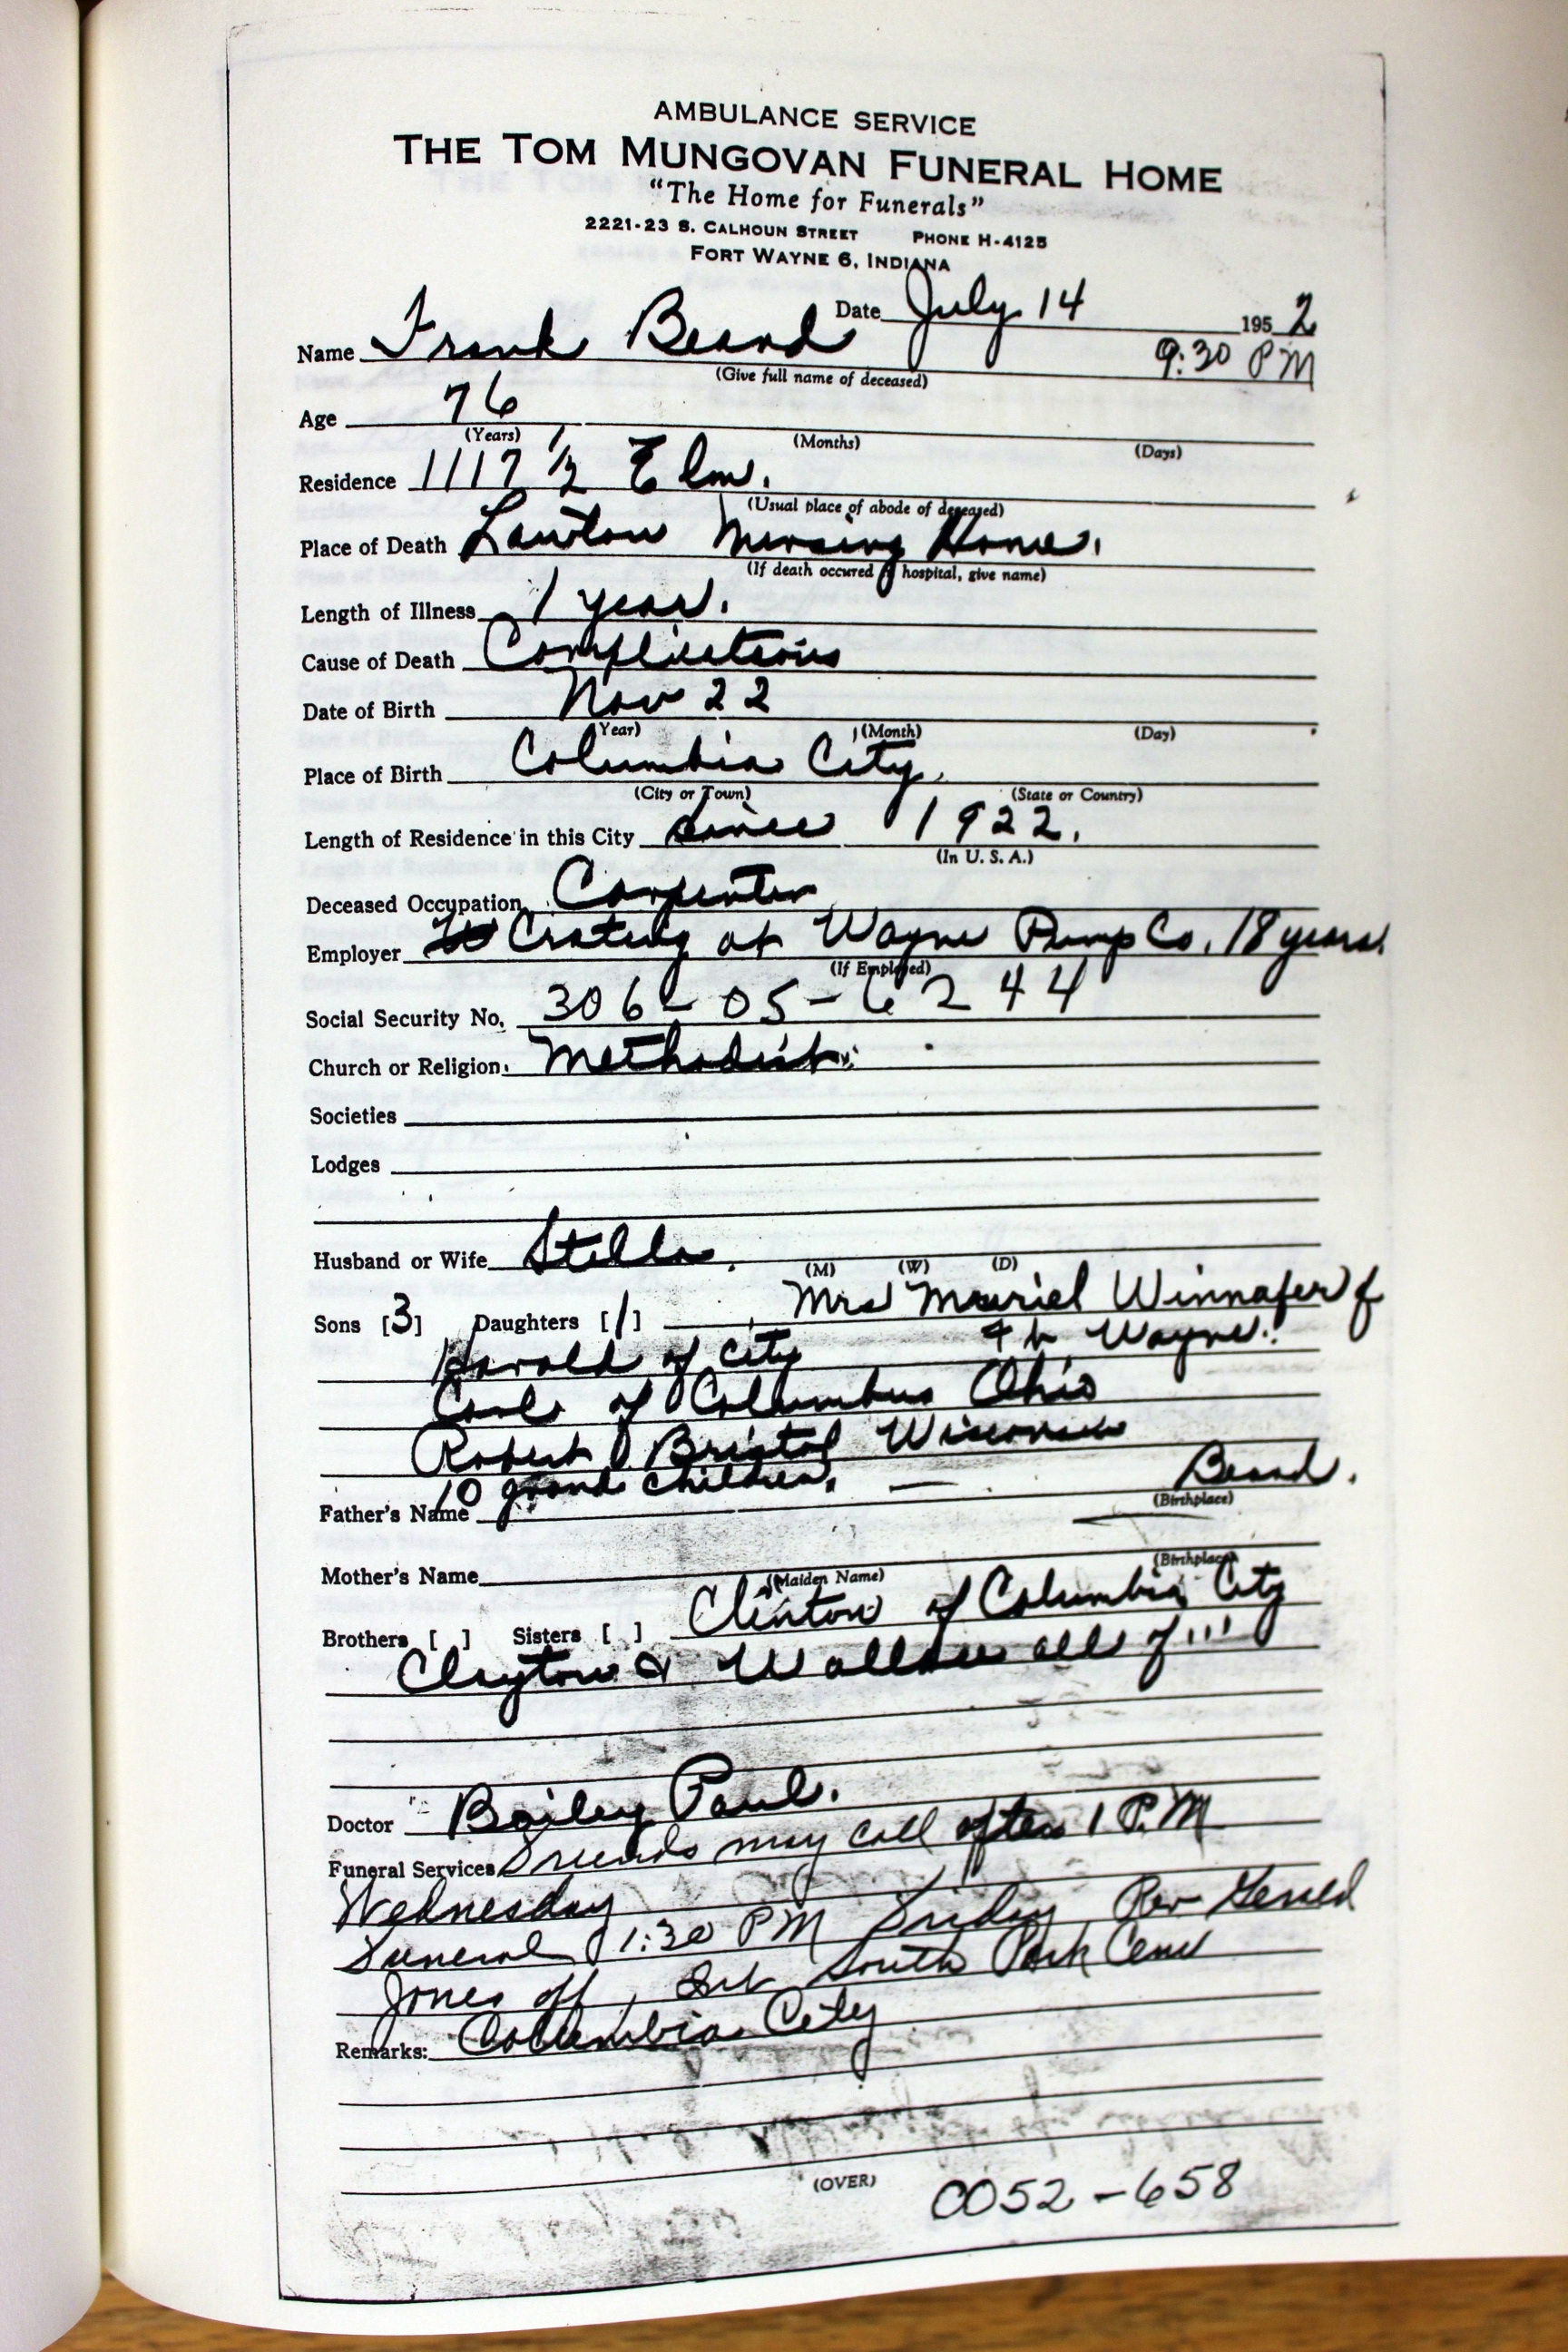 AMBULANCE SERVICE
THE TOM MUNGOVAN FUNERAL HOME
"The Home for Funerals"
2221-23 S. CALHOUN STREET PHONE H-4125
FORT WAYNE 6, INDIANA
Date July 14 1952
Name Frank Beard 9:30 PM
(Give full name of deceased)
Age 76
(Years) (Months) (Days)
Residence 1117 1/2 Elm.
(Usual place of abode of deceased)
Place of Death Lawton Nursing Home.
(If death occured hospital, give name)
Length of Illness 1 year.
Cause of Death Complications
Date of Birth Nov 22
(Year) (Month) (Day)
Place of Birth Columbia City.
(City or Town) (State or Country)
Length of Residence in this City since 1922.
(In U. S. A.)
Deceased Occupation Carpenter
Employer Crating at Wayne Pump Co. 18 years.
(If Employed)
Social Security No. 306-05-6244
Church or Religion. Methodist.
Societies
Lodges
Husband or Wife Stella.
(M) (W) (D)
Sons [3] Daughters [1] Mrs Muriel Winnafer of
Harold of City Ft Wayne.
Carl of Columbus Ohio
Robert Bristol Wisconsin
10 grand children. — Beard.
Father's Name (Birthplace)
Mother's Name
(Maiden Name) (Birthplace)
Brothers [ ] Sisters [ ] Clinton of Columbia City
Clayton & Wallace all of "'
Doctor Bailey Paul.
Funeral Services Friends may call after 1 P.M
Wednesday
Funeral 1:30 PM Friday Rev
Jones off, Int South Park Cem
Remarks: Columbia City
(OVER) CO52-658